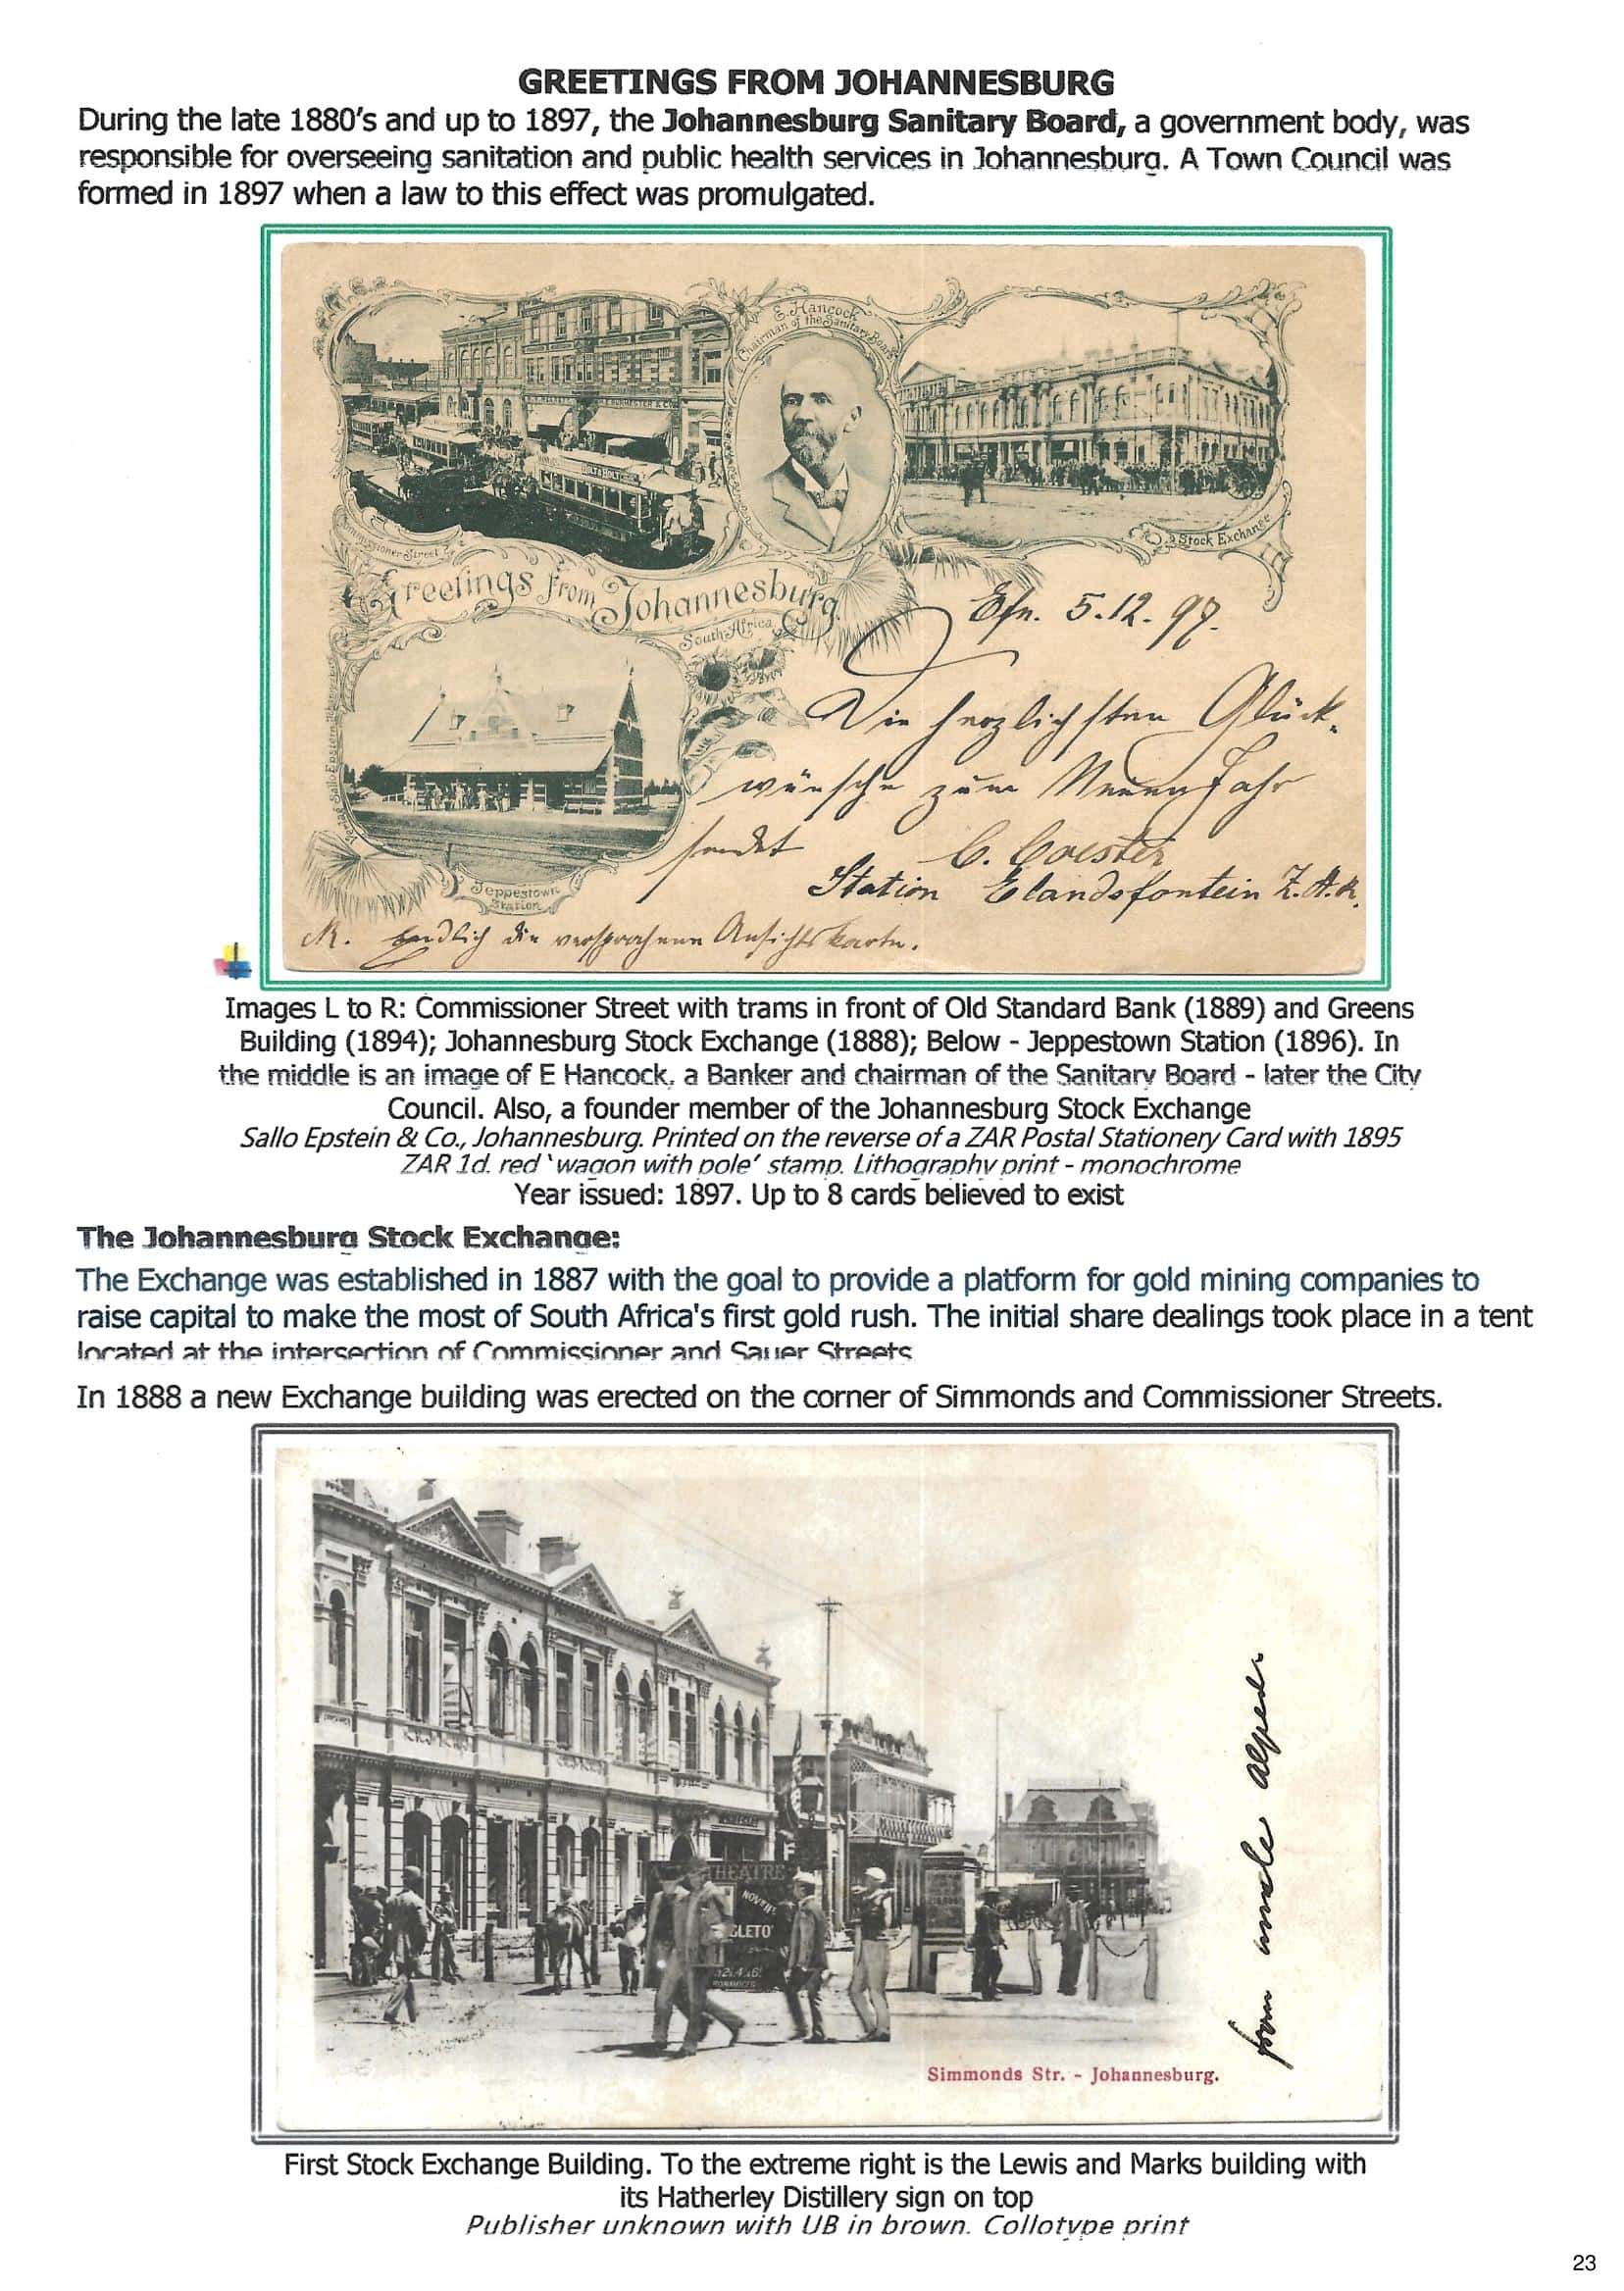 GREETINGS FROM JOHANNESBURG
During the late 1880's and up to 1897, the Johannesburg Sanitary Board, a government body, was
responsible for overseeing sanitation and public health services in Johannesburg. A Town Council was
formed in 1897 when a law to this effect was promulgated.
E. Hancock
Chairman of the Sanitary Board
HOLT & HOLT
Commissioner Street
Stock Exchange
Greetings from Johannesburg.
South Africa.
Efn. 5.12.97.
Die herzlichsten Glück-
wünsche zum Neuen Jahr
sendet C. Coester
Station Elandsfontein Z.A.R.
Jeppestown
Station
N. Endlich die versprochene Ansichtskarte.
Images L to R: Commissioner Street with trams in front of Old Standard Bank (1889) and Greens
Building (1894); Johannesburg Stock Exchange (1888); Below - Jeppestown Station (1896). In
the middle is an image of E Hancock, a Banker and chairman of the Sanitary Board - later the City
Council. Also, a founder member of the Johannesburg Stock Exchange
Sallo Epstein & Co., Johannesburg. Printed on the reverse of a ZAR Postal Stationery Card with 1895
ZAR 1d. red 'wagon with pole' stamp. Lithography print - monochrome
Year issued: 1897. Up to 8 cards believed to exist
The Johannesburg Stock Exchange:
The Exchange was established in 1887 with the goal to provide a platform for gold mining companies to
raise capital to make the most of South Africa's first gold rush. The initial share dealings took place in a tent
located at the intersection of Commissioner and Sauer Streets
In 1888 a new Exchange building was erected on the corner of Simmonds and Commissioner Streets.
THEATRE
from uncle Alfred
Simmonds Str. - Johannesburg.
First Stock Exchange Building. To the extreme right is the Lewis and Marks building with
its Hatherley Distillery sign on top
Publisher unknown with UB in brown. Collotype print
23